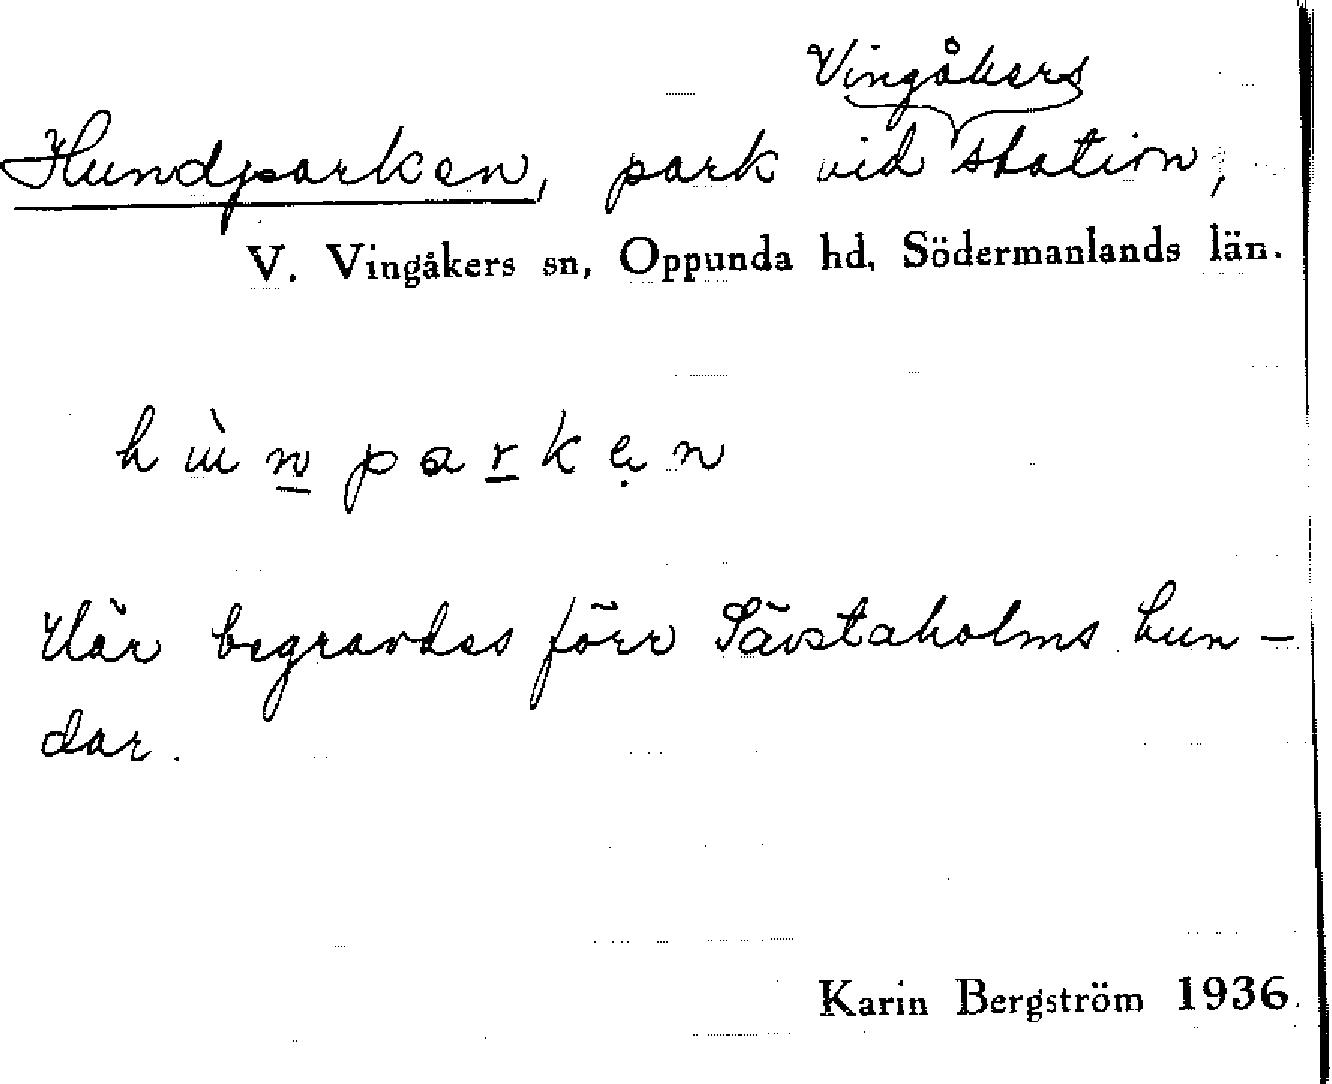 Vingåkers
Hundparken, park vid station,
V. Vingåkers sn, Oppunda hd, Södermanlands län.
h ù n p a r k ẹ n
Här begravdes förr Sävstaholms hun-
dar.
Karin Bergström 1936